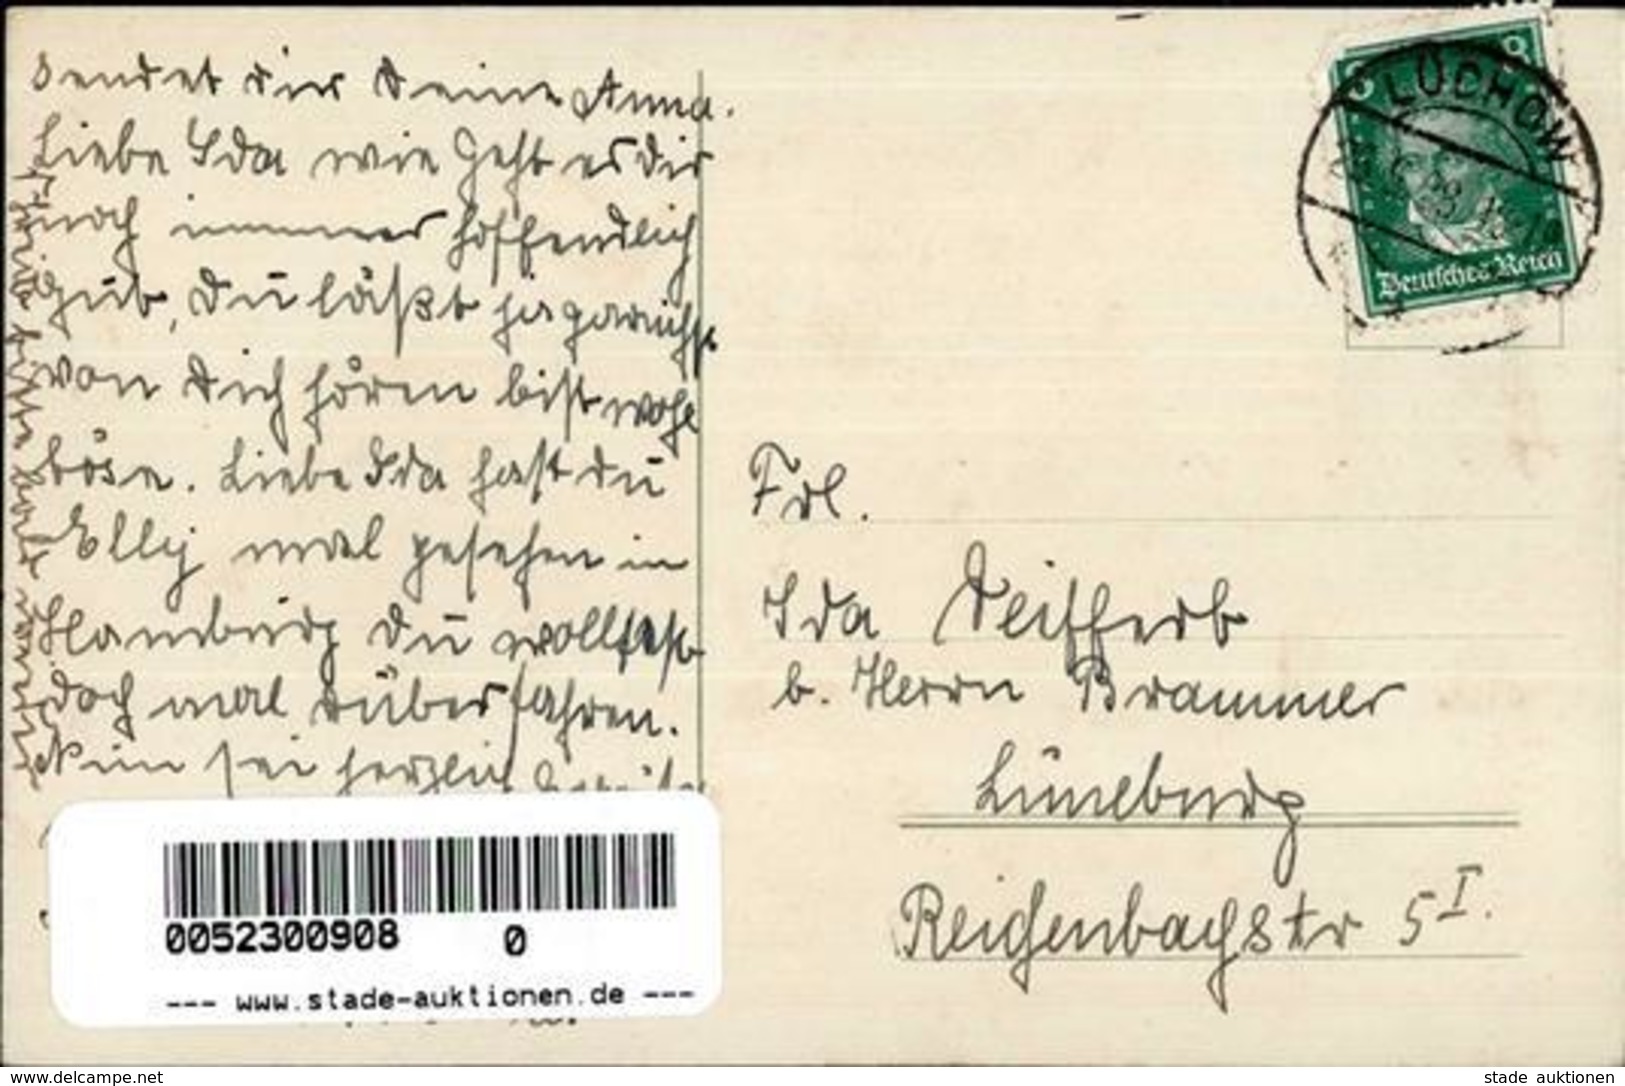 sendet dir deine Anna.
Liebe Ida wie geht es dir
noch immer hoffendlich
gut, du läßt ja garnichst
von dich hören bist wohl
böse. Liebe Ida hast du
Elly mal gesehen in
Hamburg du wollstest
doch mal rüber fahren.
Nun sei herzlich
schreib bitte bald
0052300908 0
--- www.stade-auktionen.de ---
LÜCHOW
8 8
Deutsches Reich
Frl.
Ida
b. Herrn Brammer
Lüneburg
Reichenbachstr 5 I.
www.delcampe.net
stade auktionen